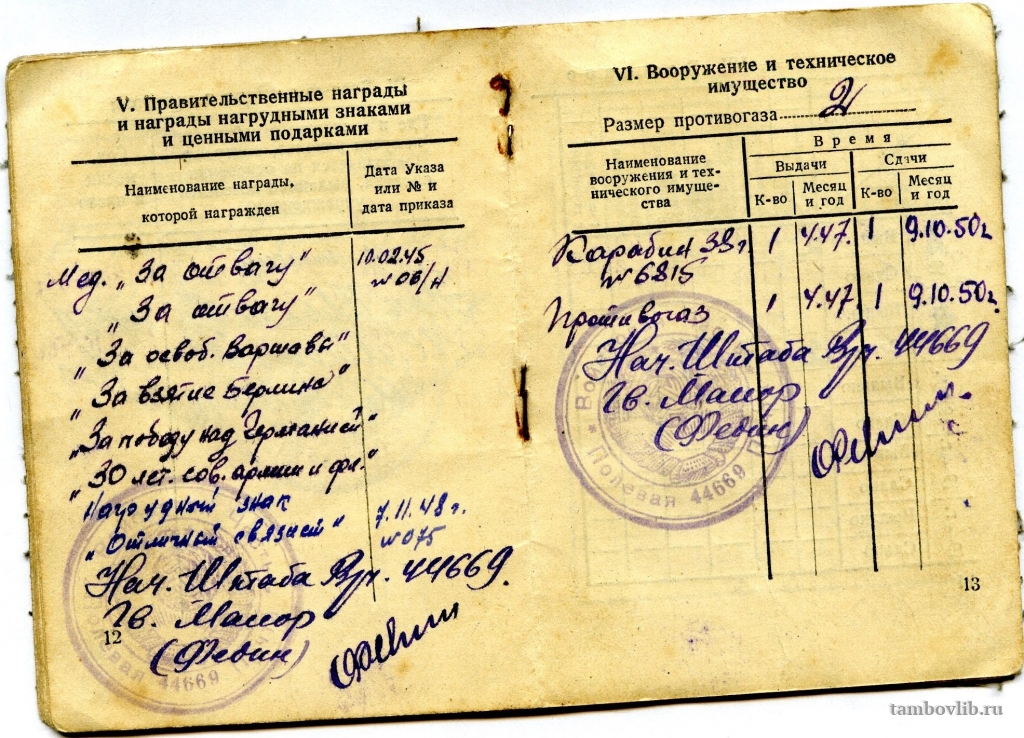 V. Правительственные награды
и награды нагрудными знаками
и ценными подарками
Наименование награды,
которой награжден
Дата Указа
или № и
дата приказа
Мед. „За отвагу" 10.02.45
№06/н
„За отвагу"
„За освоб. Варшавы"
„За взятие Берлина"
„За победу над Германией"
„30 лет. сов. армии и фл."
Нагрудный знак
„Отличный связист" 7.11.48 г.
№075
Нач. Штаба В/ч. 44669.
Гв. Майор
(Федин)
12
Полевая 44669
VI. Вооружение и техническое
имущество
Размер противогаза 2
Наименование
вооружения и тех-
нического имуще-
ства
Время
Выдачи
Сдачи
К-во
Месяц
и год
К-во
Месяц
и год
Карабин 38 г. 1 4.47. 1 9.10.50г.
№6815
Противогаз 1 4.47. 1 9.10.50г.
Нач. Штаба В/ч. 44669
Гв. Майор
(Федин)
Полевая 44669
13
tambovlib.ru